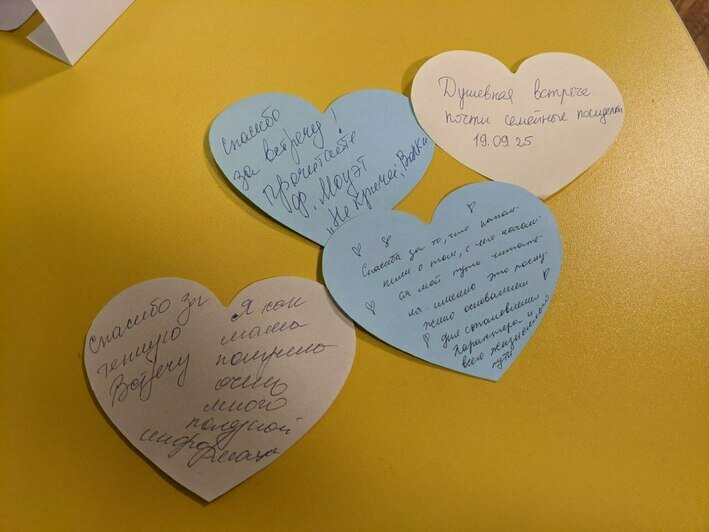 Душевная встреча
почти семейные посиделки
19.09.25.
Спасибо
за встречу!
Прочитайте
Ф. Моуэт
„Не кричи, Волки
Спасибо за то, что напом-
нили о том, с чего начал-
ся мой путь читате-
ля. именно это послу-
жило основанием
для становления
характера и
всего жизненного
пути
Спасибо за
теплую
Встречу
Я как
мама
получила
очень
много
полезной
информации